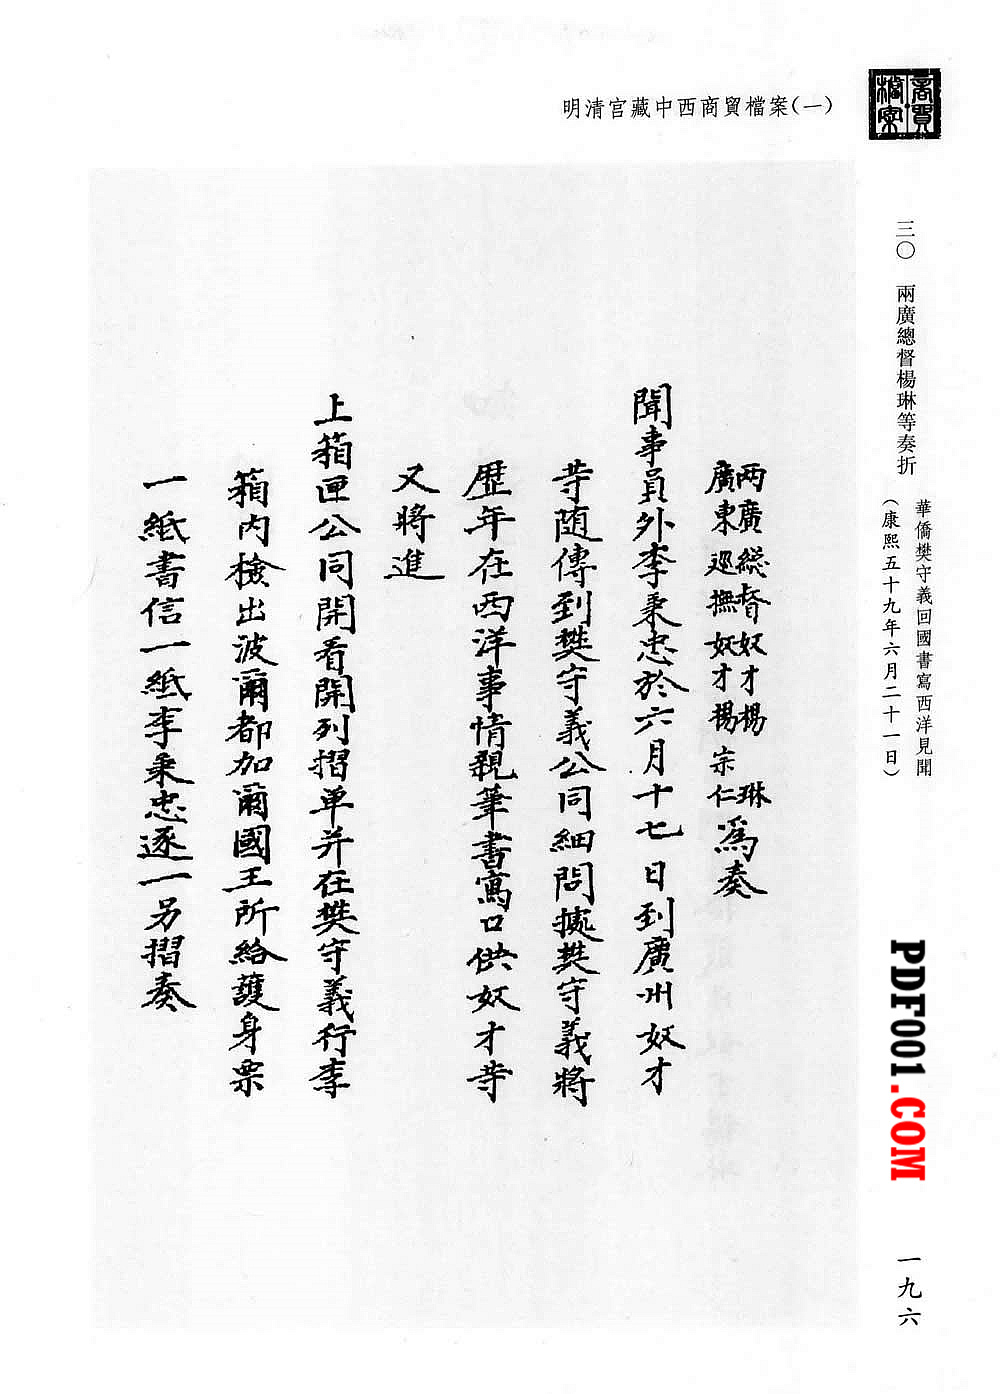 明清宮藏中西商貿檔案(一)
商貿檔案
三〇 兩廣總督楊琳等奏折
華僑樊守義回國書寫西洋見聞
(康熙五十九年六月二十一日)
两廣総督奴才楊琳
廣東巡撫奴才楊宗仁為奏
聞事員外李秉忠於六月十七日到廣州奴才
寺随傳到樊守義公同細問據樊守義將
歷年在西洋事情親筆書寫口供奴才寺
又將進
上箱匣公同開看開列摺单并在樊守義行李
箱内檢出波爾都加爾國王所給護身票
一紙書信一紙李秉忠逐一另摺奏
PDF001.COM
一九六